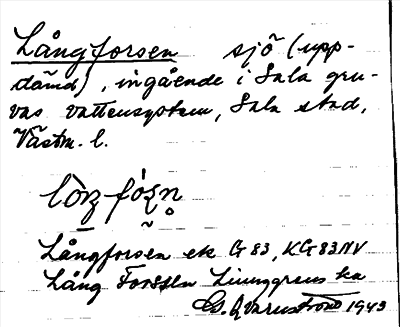 Långforsen sjö (upp-
dämd), ingående i Sala gru-
vas vattensystem, Sala stad,
Västm. l.
Långforsen ek G 83, KG 83 NV
Lång Forssen Linngrens ka
G. Qvarnström 1943